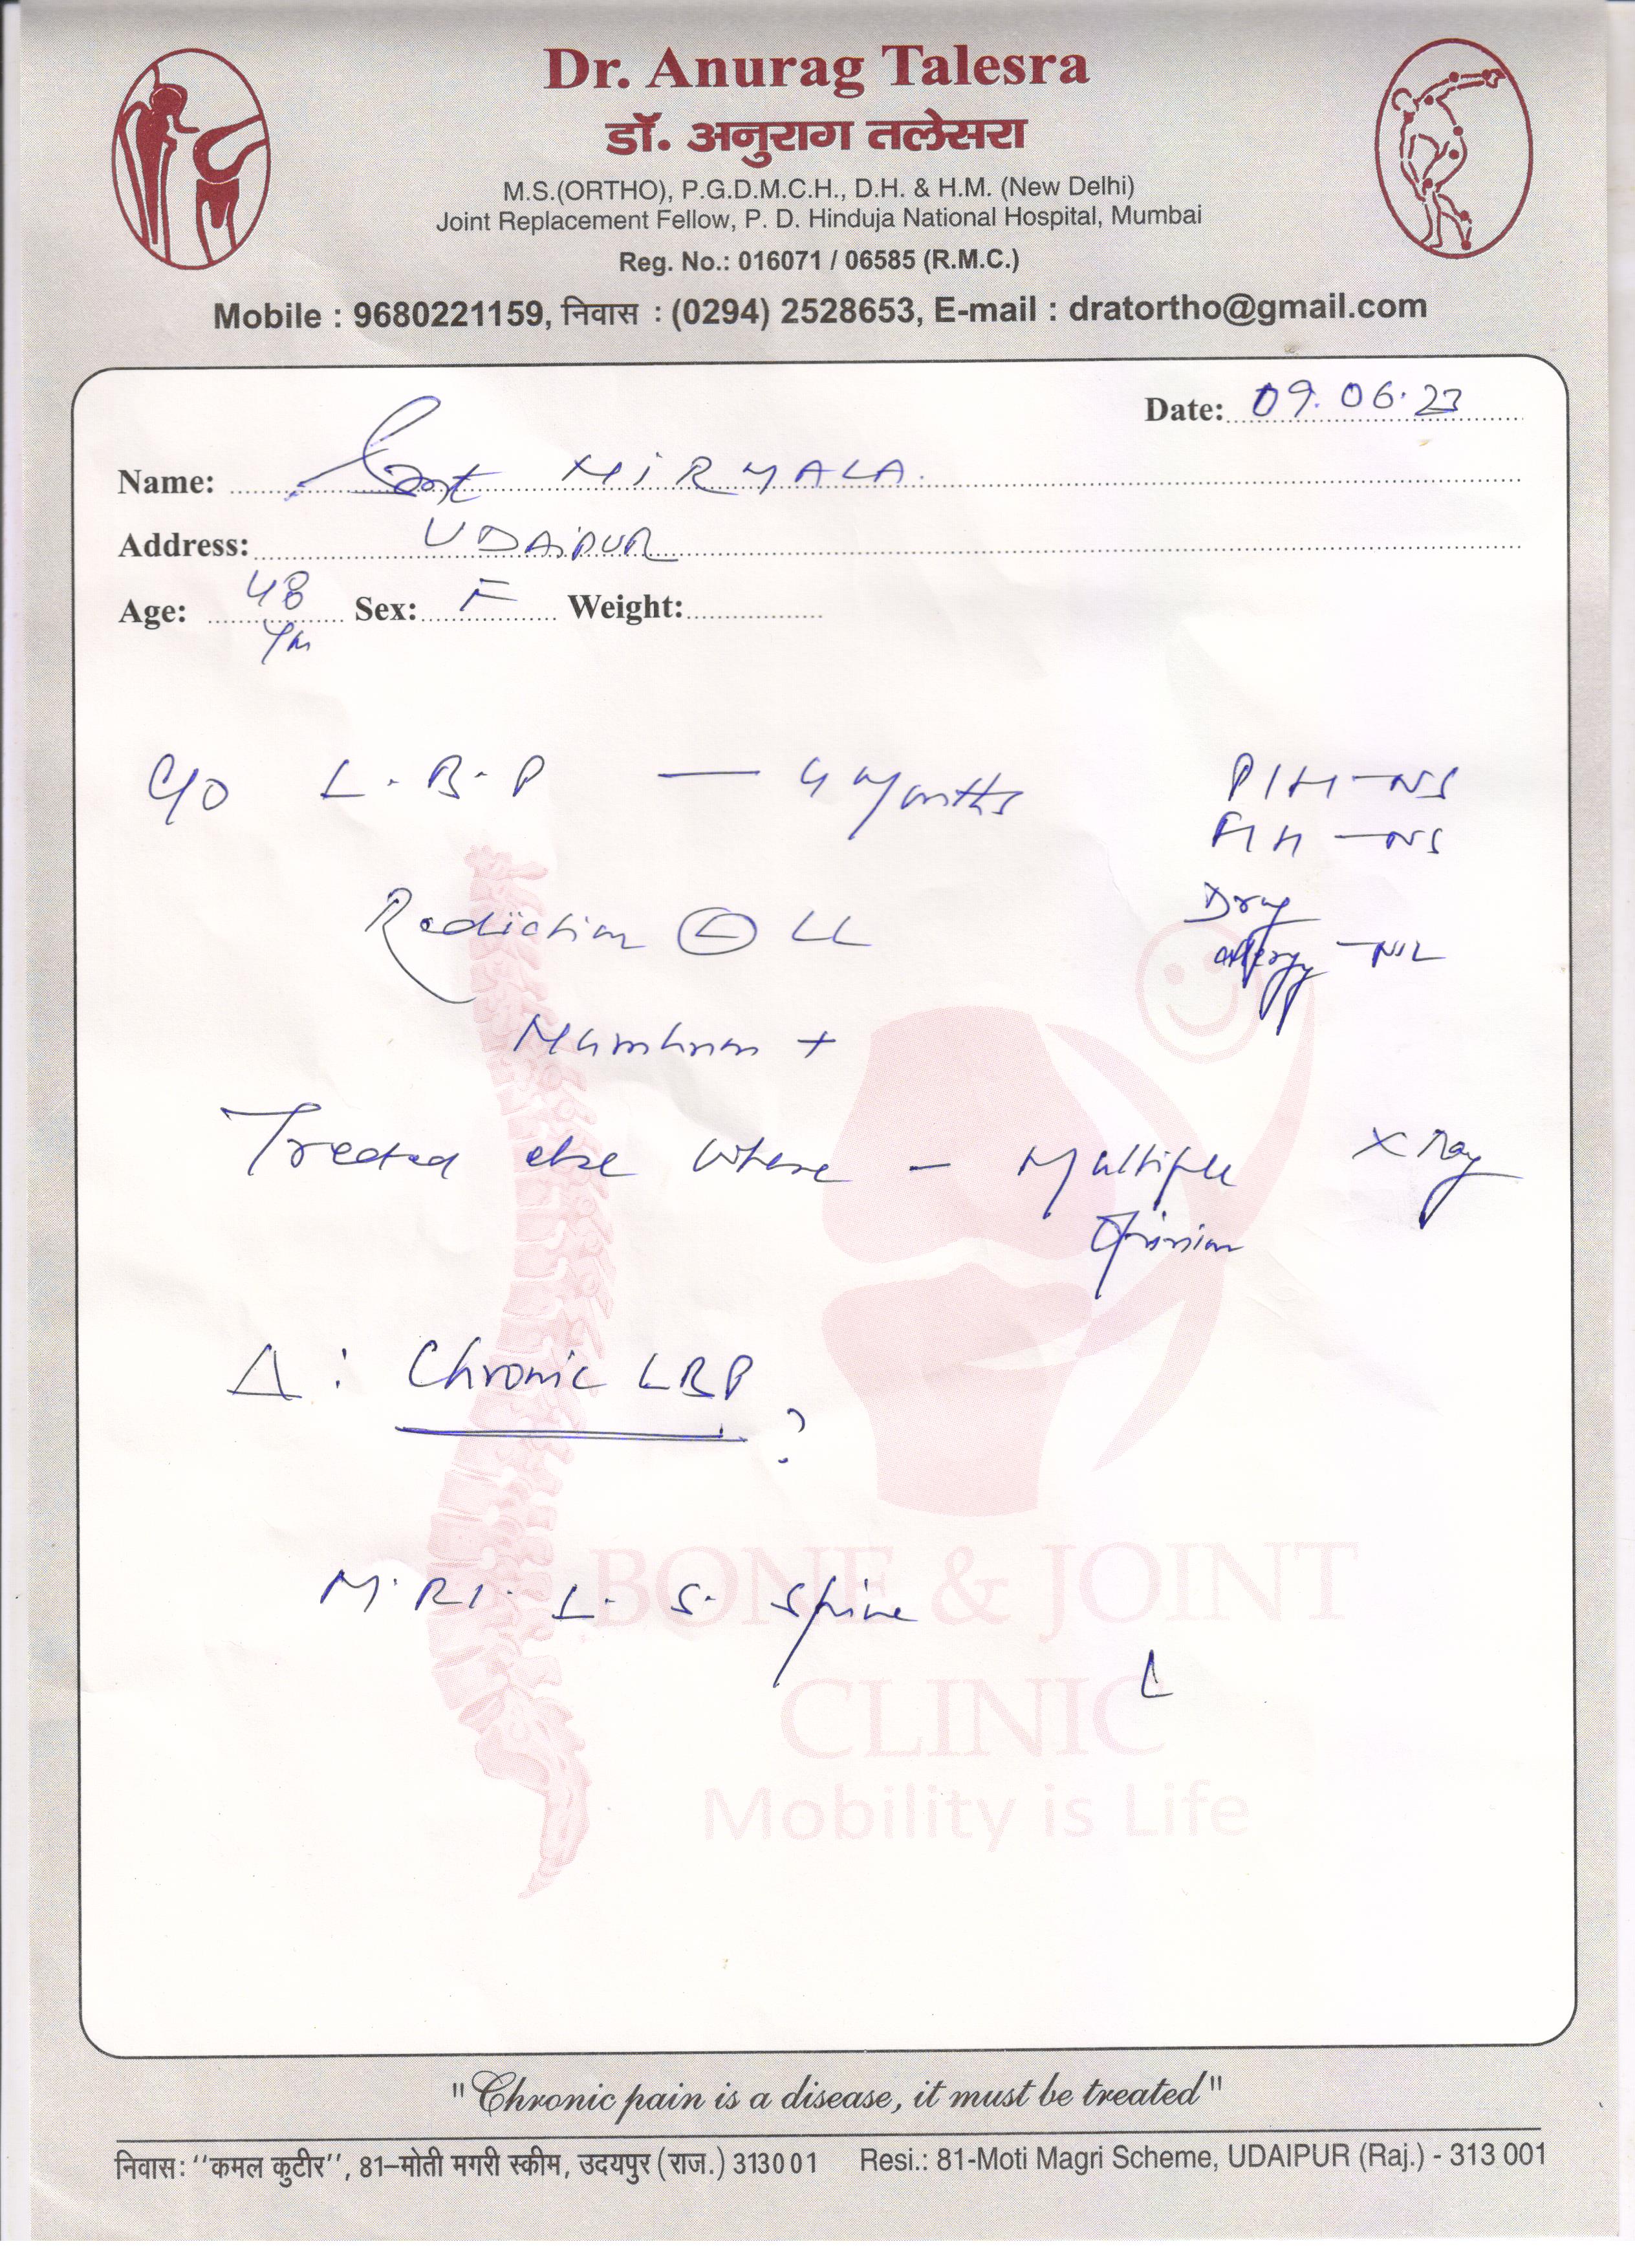 Dr. Anurag Talesra
डॉ. अनुराग तलेसरा
M.S.(ORTHO), P.G.D.M.C.H., D.H. & H.M. (New Delhi)
Joint Replacement Fellow, P. D. Hinduja National Hospital, Mumbai
Reg. No.: 016071 / 06585 (R.M.C.)
Mobile : 9680221159, निवास : (0294) 2528653, E-mail : dratortho@gmail.com
Date: 09.06.23
Name: Smt NIRMALA.
Address: UDAiPUR
Age: 48 Sex: F Weight:
Yrs
C/O L.B.P — 4 Months P/H — NS
F/H — NS
Radiation Ⓛ LL Drug
allergy — NIL
Numbness +
Treated else where — Multiple X Ray
Opinion
Δ : Chronic LBP
?
M.RI. L. S. Spine
L
BONE & JOINT
CLINIC
Mobility is Life
"Chronic pain is a disease, it must be treated"
निवास: ''कमल कुटीर'', 81–मोती मगरी स्कीम, उदयपुर (राज.) 313001 Resi.: 81-Moti Magri Scheme, UDAIPUR (Raj.) - 313 001